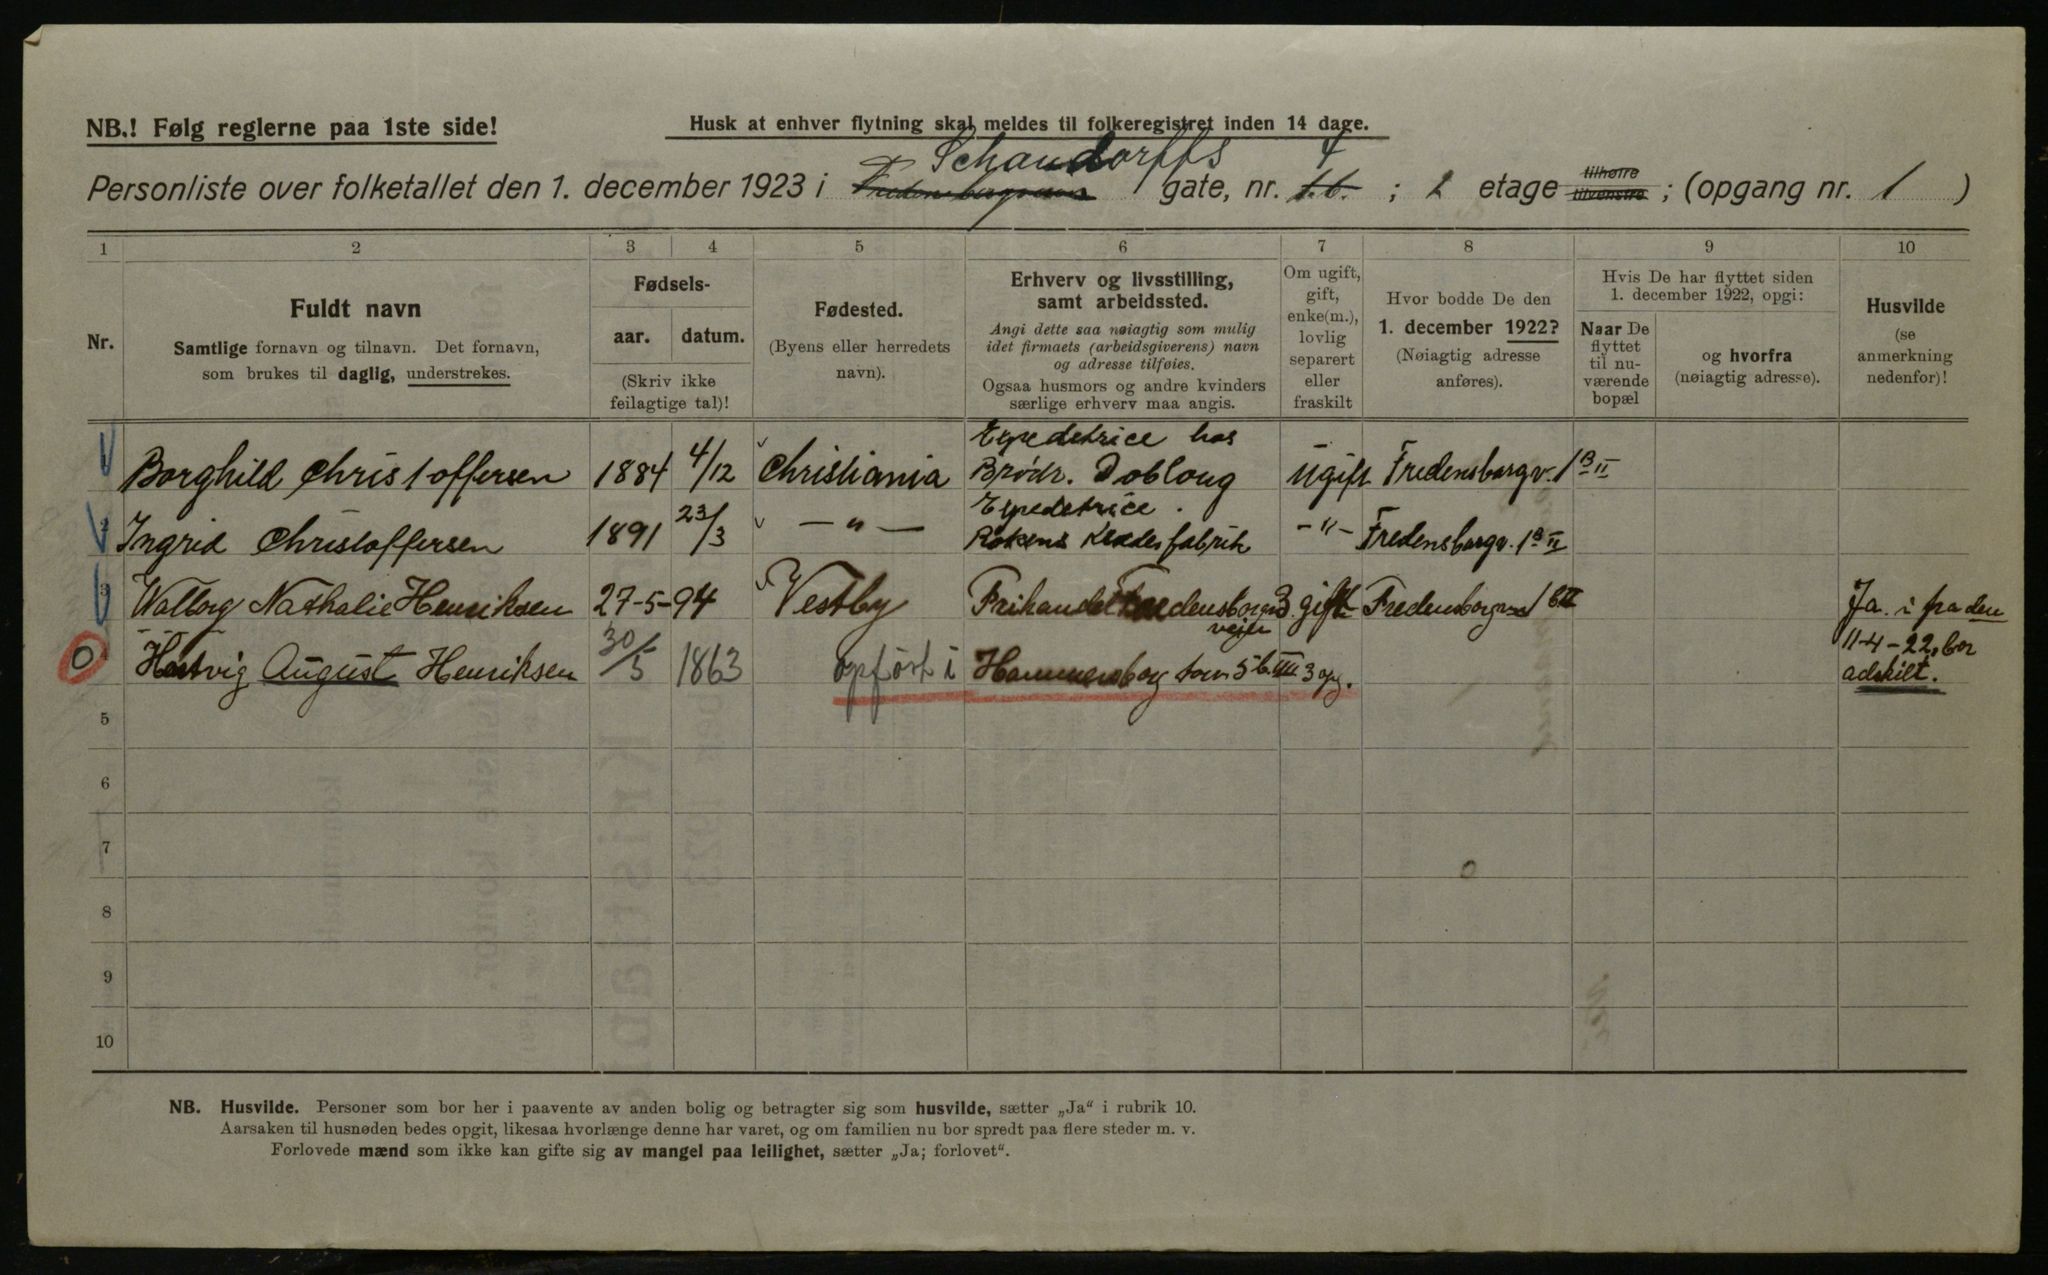 NB.! Følg reglerne paa 1ste side!
Husk at enhver flytning skal meldes til folkeregistret inden 14 dage.
Schandorffs 4
Personliste over folketallet den 1. december 1923 i Fredensborgveien gate, nr. 1.b. ; 2 etage tilhøire tilvenstre ; (opgang nr. 1 )
1 2 3 4 5 6 7 8 9 10
Nr.
Fuldt navn
Samtlige fornavn og tilnavn. Det fornavn,
som brukes til daglig, understrekes.
Fødsels-
aar. datum.
(Skriv ikke
feilagtige tal)!
Fødested.
(Byens eller herredets
navn).
Erhverv og livsstilling,
samt arbeidssted.
Angi dette saa nøiagtig som mulig
idet firmaets (arbeidsgiverens) navn
og adresse tilføies.
Ogsaa husmors og andre kvinders
særlige erhverv maa angis.
Om ugift,
gift,
enke(m.),
lovlig
separert
eller
fraskilt
Hvor bodde De den
1. december 1922?
(Nøiagtig adresse
anføres).
Hvis De har flyttet siden
1. december 1922, opgi:
Naar De
flyttet
til nu-
værende
bopæl
og hvorfra
(nøiagtig adresse).
Husvilde
(se
anmerkning
nedenfor)!
Expedetrice hos
Borghild Christoffersen 1884 4/12 Christiania Brødr. Dobloug Ugift Fredensborgv. 1B II
Expedetrice.
2 Ingrid Christoffersen 1891 23/3 — " — Røkens Kladesfabrik - " - Fredensborgv. 1B II
3 Walborg Nathalie Henriksen 27-5-94 Vestby Frihandel Fredensborg 3 gift Fredensborgvn 1 B II Ja. i fra den
veien
11-4-22, bor
4 Hartvig August Henriksen 30/5 1863 opført i Hammersborg torv 5 b. III 3 opg. adskilt.
5
6
7
8
9
10
NB. Husvilde. Personer som bor her i paavente av anden bolig og betragter sig som husvilde, sætter „Ja“ i rubrik 10.
Aarsaken til husnøden bedes opgit, likesaa hvorlænge denne har varet, og om familien nu bor spredt paa flere steder m. v.
Forlovede mænd som ikke kan gifte sig av mangel paa leilighet, sætter „Ja; forlovet“.